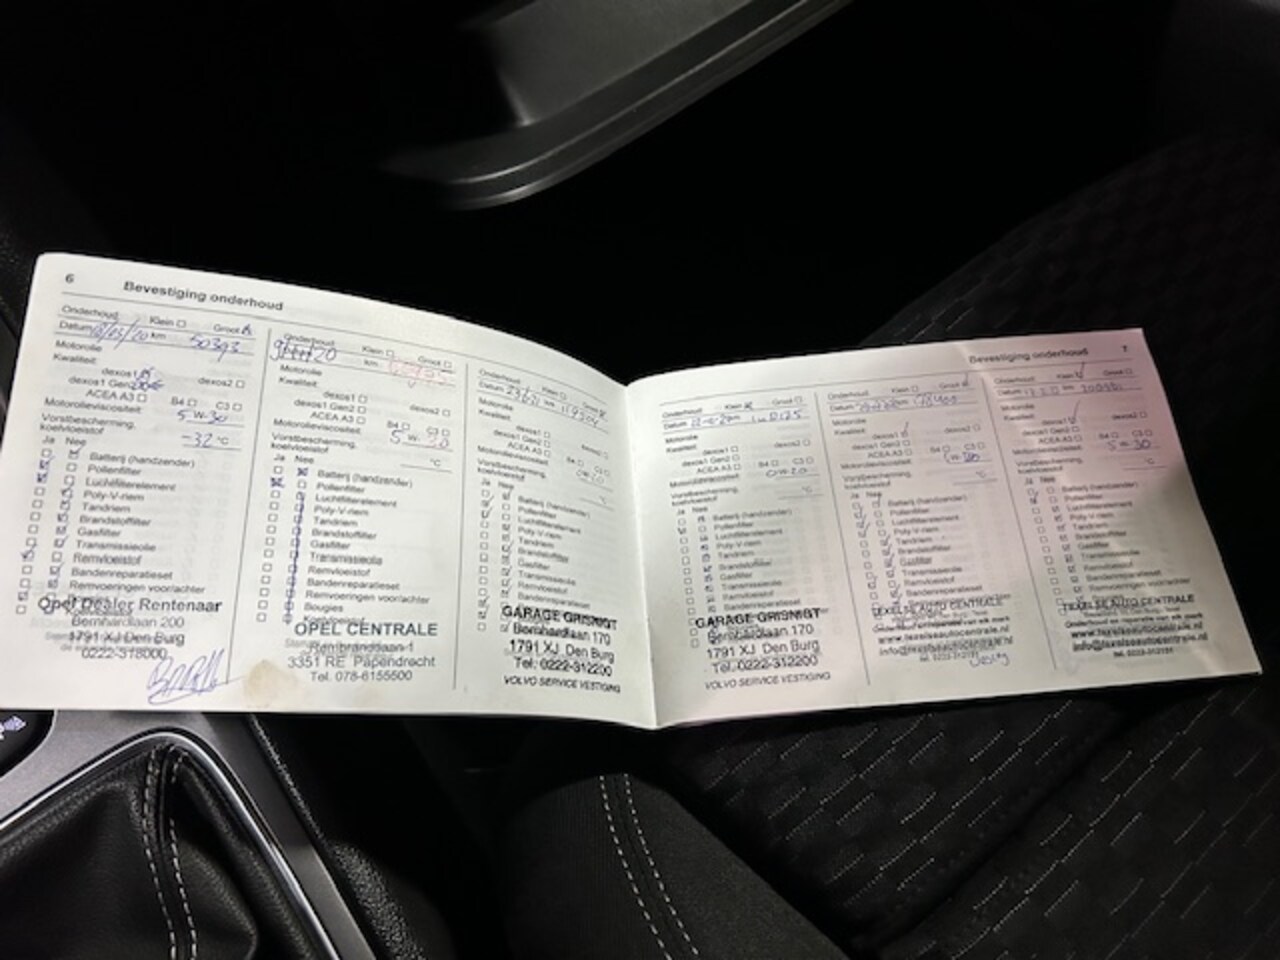 6 Bevestiging onderhoud
Onderhoud: Klein Groot
Datum km 50393
Motorolie
Kwaliteit:
dexos1
dexos1 Gen2 dexos2
ACEA A3 B4 C3
Motorolieviscositeit: 5W-30
Vorstbescherming,
koelvloeistof -32 °C
Ja Nee
Batterij (handzender)
Pollenfilter
Luchtfilterelement
Poly-V-riem
Tandriem
Brandstoffilter
Gasfilter
Transmissieolie
Remvloeistof
Bandenreparatieset
Remvoeringen voor/achter
Opel Dealer Rentenaar
Bernhardlaan 200
1791 XJ Den Burg
0222-318000
Onderhoud: Klein Groot
km
Motorolie
Kwaliteit:
dexos1
dexos1 Gen2 dexos2
ACEA A3 B4 C3
Motorolieviscositeit: 5W-30
Vorstbescherming,
koelvloeistof °C
Ja Nee
Batterij (handzender)
Pollenfilter
Luchtfilterelement
Poly-V-riem
Tandriem
Brandstoffilter
Gasfilter
Transmissieolie
Remvloeistof
Bandenreparatieset
Remvoeringen voor/achter
Bougies
OPEL CENTRALE
Rembrandtlaan 1
3351 RE Papendrecht
Tel. 078-6155500
Onderhoud: Klein Groot
Datum km
Motorolie
Kwaliteit:
dexos1
dexos1 Gen2 dexos2
ACEA A3 B4 C3
Motorolieviscositeit:
Vorstbescherming,
koelvloeistof °C
Ja Nee
Batterij (handzender)
Pollenfilter
Luchtfilterelement
Poly-V-riem
Tandriem
Brandstoffilter
Gasfilter
Transmissieolie
Remvloeistof
Bandenreparatieset
GARAGE GRISNIGT
Bernhardlaan 170
1791 XJ Den Burg
Tel. 0222-312200
VOLVO SERVICE VESTIGING
Bevestiging onderhoud 7
Onderhoud: Klein Groot
Datum km
Motorolie
Kwaliteit:
dexos1
dexos1 Gen2 dexos2
ACEA A3 B4 C3
Motorolieviscositeit: 0W-20
Vorstbescherming,
koelvloeistof °C
Ja Nee
Batterij (handzender)
Pollenfilter
Luchtfilterelement
Poly-V-riem
Tandriem
Brandstoffilter
Gasfilter
Transmissieolie
Remvloeistof
Bandenreparatieset
GARAGE GRISNIGT
Bernhardlaan 170
1791 XJ Den Burg
Tel. 0222-312200
VOLVO SERVICE VESTIGING
Onderhoud: Klein Groot
Datum km
Motorolie
Kwaliteit:
dexos1
dexos1 Gen2 dexos2
ACEA A3 B4 C3
Motorolieviscositeit:
Vorstbescherming,
koelvloeistof °C
Ja Nee
Batterij (handzender)
Pollenfilter
Luchtfilterelement
Poly-V-riem
Tandriem
Brandstoffilter
Gasfilter
Transmissieolie
Remvloeistof
Bandenreparatieset
TEXELSE AUTO CENTRALE
www.texelseautocentrale.nl
info@texelseautocentrale.nl
Onderhoud: Klein Groot
Datum km
Motorolie
Kwaliteit:
dexos1
dexos1 Gen2 dexos2
ACEA A3 B4 C3
Motorolieviscositeit: 5W-30
Vorstbescherming,
koelvloeistof °C
Ja Nee
Batterij (handzender)
Pollenfilter
Luchtfilterelement
Poly-V-riem
Tandriem
Brandstoffilter
Gasfilter
Transmissieolie
Remvloeistof
Bandenreparatieset
Remvoeringen voor/achter
TEXELSE AUTO CENTRALE
Onderhoud en reparatie van elk merk
www.texelseautocentrale.nl
info@texelseautocentrale.nl